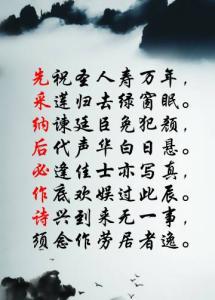 先祝圣人寿万年，
采莲归去绿窗眠。
纳谏廷臣免犯颜，
后代声华白日悬。
必逢佳士亦写真，
作底欢娱过此辰。
诗兴到来无一事，
须念作劳居者逸。